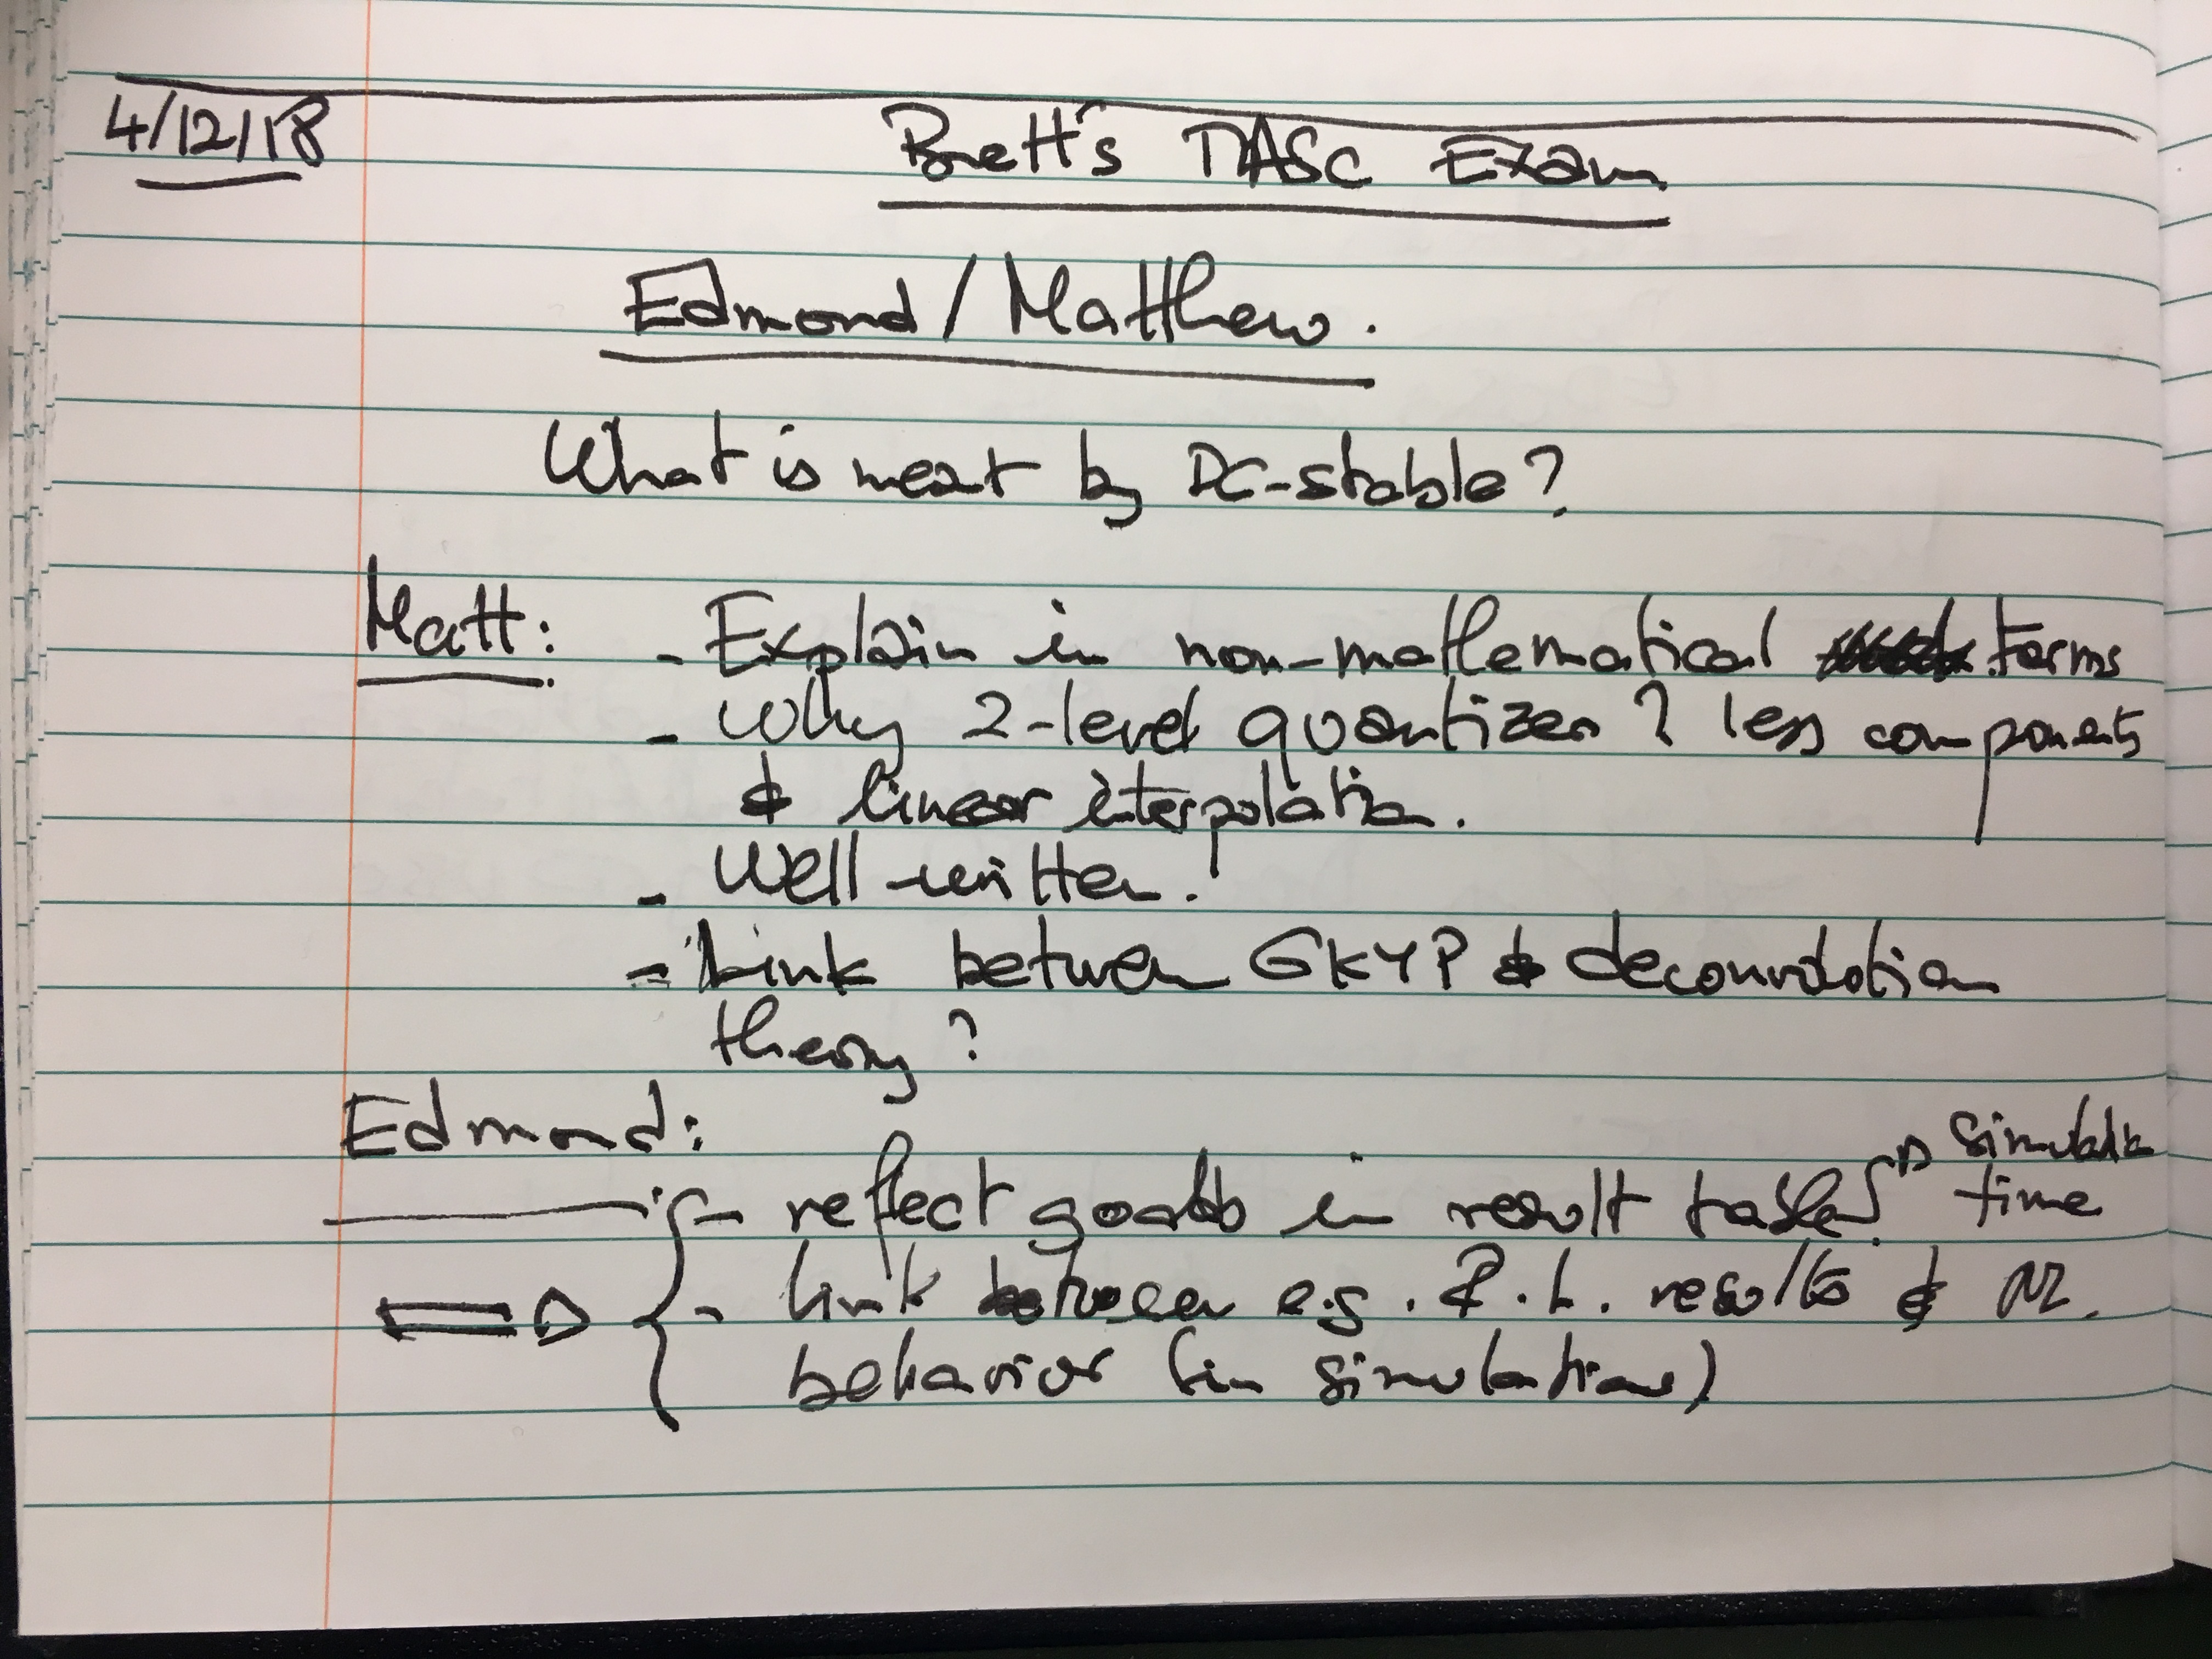 4/12/18 Brett's TASC Exam
Edmond / Matthew.
What is meat by DC-stable?
Matt: - Explain in non-mathematical terms
- why 2-level quantizer? less components
& linear interpolation.
- Well-written!
- Link between GKYP & deconvolution
theory?
Edmond:
simulate
- reflect goals in result table time
- link between e.g. P.L. results & M.
behavior (in simulations)